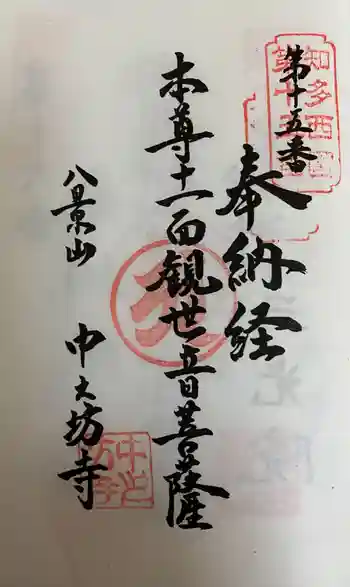 第十五番
奉納経
本尊十一面観世音菩薩
八景山
中之坊寺
知多西国
中之
坊寺